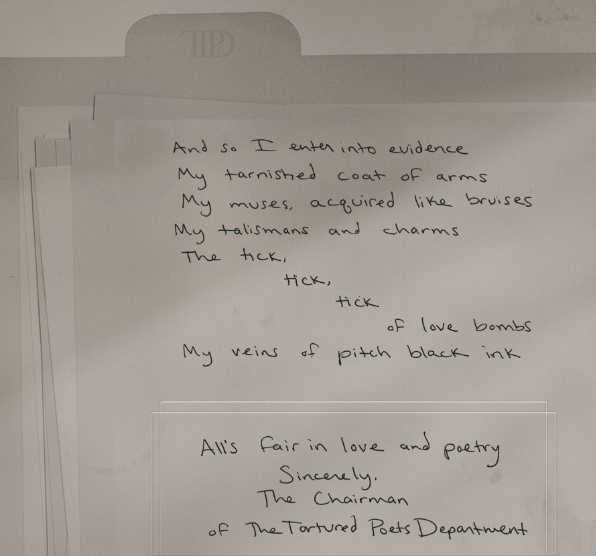 TTPD
And so I enter into evidence
My tarnished coat of arms
My muses, acquired like bruises
My talismans and charms
The tick,
tick,
tick
of love bombs
My veins of pitch black ink
All's fair in love and poetry
Sincerely,
The Chairman
of The Tortured Poets Department